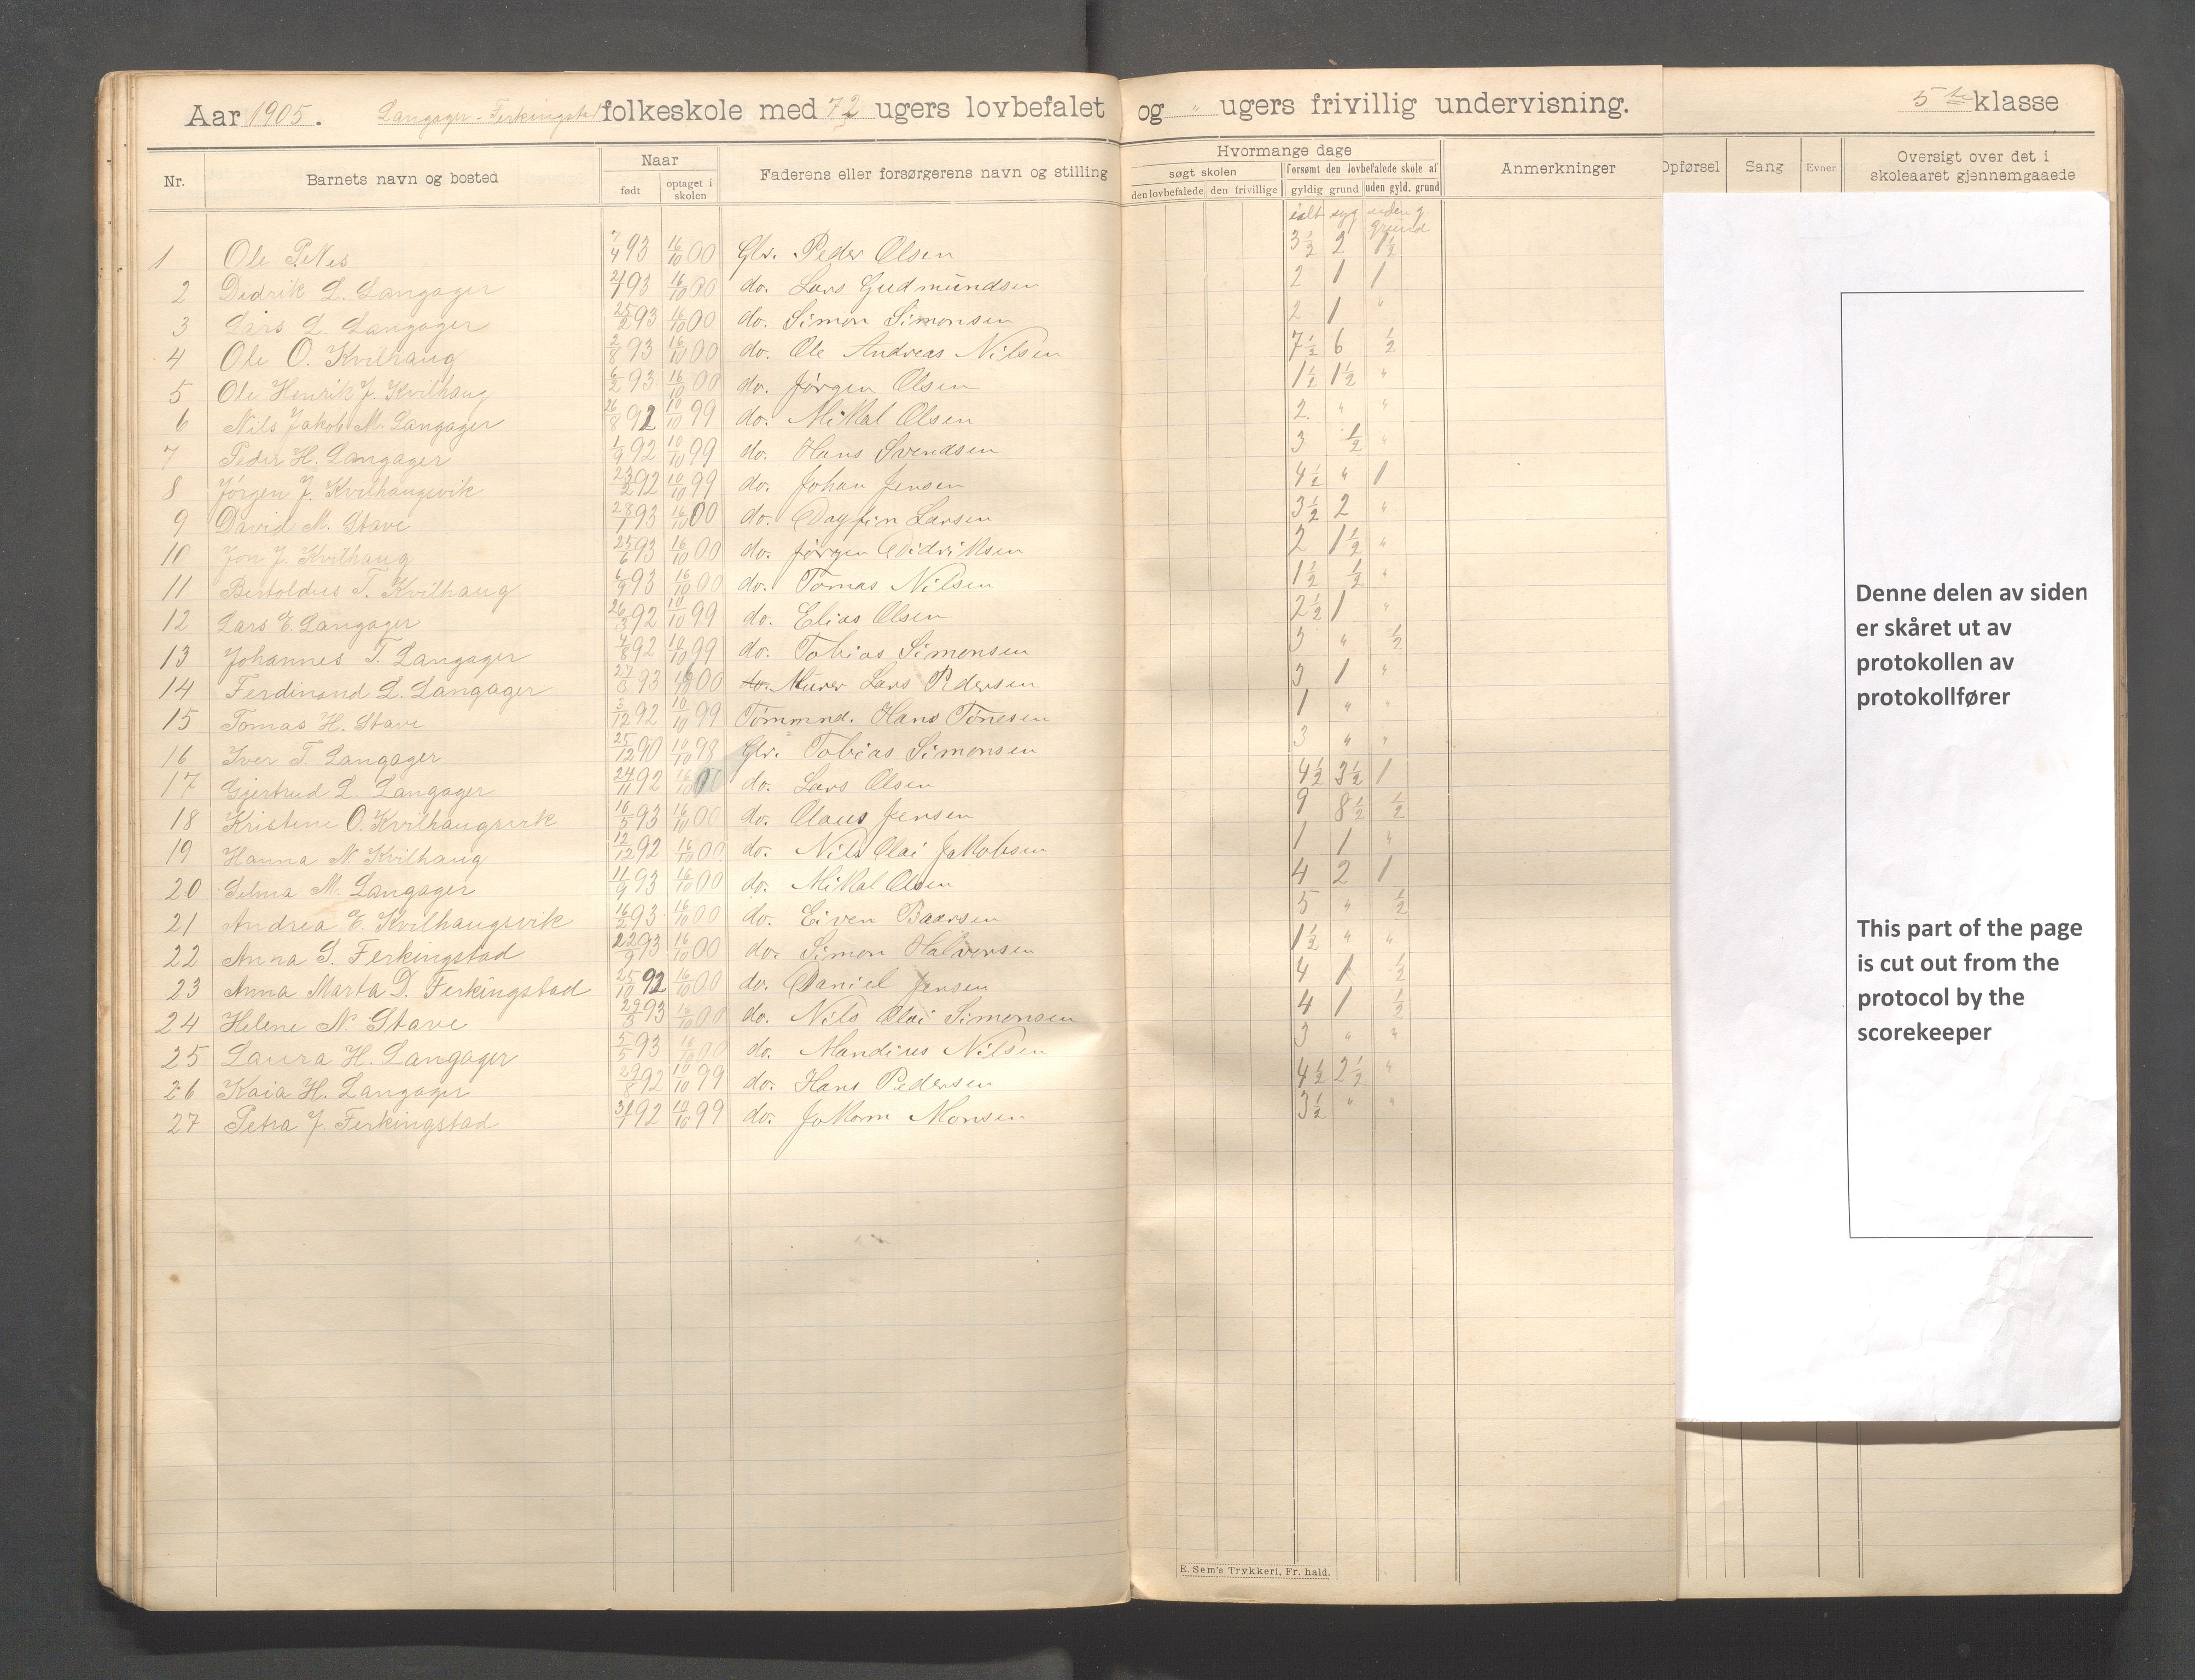 Aar 1905. Langager-Ferkingstad folkeskole med 72 ugers lovbefalet og " ugers frivillig undervisning. 5te klasse
Nr. Barnets navn og bosted Naar født optaget i skolen Faderens eller forsørgerens navn og stilling Hvormange dage søgt skolen den lovbefalede den frivillige forsømt den lovbefalede skole af gyldig grund uden gyld. grund Anmerkninger Opførsel Sang Evner Oversigt over det i skoleaaret gjennemgaaede
ialt syg uden g. grund
1 Ole P. Nes 7/4 93 16/10 00 Gbr. Peder Olsen 3 1/2 2 1 1/2
2 Didrik L. Langager 93 16/10 00 do. Lars Gudmundsen 2 1 1
3 Lars L. Langager 25/2 93 16/10 00 do. Simon Simonsen 2 1 "
4 Ole O. Kvilhaug 2/8 93 16/10 00 do. Ole Andreas Nilsen 7 1/2 6 1/2
5 Ole Henrik J. Kvilhaug 6/2 93 16/10 00 do. Jørgen Olsen 1 1/2 1 1/2 "
6 Nils Jakob M. Langager 26/8 92 10/10 99 do. Mikkal Olsen 2 " "
7 Peder H. Langager 1/9 92 10/10 99 do. Hans Svendsen 3 1/2 "
8 Jørgen J. Kvilhaugsvik 23/2 92 10/10 99 do. Johan Jensen 4 1/2 " 1
9 David M. Stave 28/1 93 16/10 00 do. Dagfin Larsen 3 1/2 2 "
10 Jon J. Kvilhaug 25/6 93 16/10 00 do. Jørgen Didriksen 2 1 1/2 "
11 Bertoldus T. Kvilhaug 6/9 93 16/10 00 do. Tomas Nilsen 1 1/2 1/2 "
12 Lars E. Langager 26/3 92 10/10 99 do. Elias Olsen 2 1/2 1 "
13 Johannes T. Langager 4/8 92 10/10 99 do. Tobias Simonsen 3 " 1/2
14 Ferdinand L. Langager 27/8 93 16/10 00 do. Murer Lars Pedersen 3 1 "
15 Tomas H. Stave 3/12 92 10/10 99 Tømmnd. Hans Tønesen 1 " "
16 Iver T. Langager 25/12 90 10/10 98 Gbr. Tobias Simonsen 3 " "
17 Gjertrud L. Langager 24/11 92 16/10 00 do. Lars Olsen 4 1/2 3 1/2 1
18 Kristine O. Kvilhaugsvik 16/5 93 16/10 00 do. Olaus Jensen 9 8 1/2 1/2
19 Hanna N. Kvilhaug 12/12 92 16/10 00 do. Nils Olai Jakobsen 1 1 "
20 Selma M. Langager 11/9 93 16/10 00 do. Mikal Olsen 4 2 1
21 Andrea E. Kvilhaugsvik 16/2 93 16/10 00 do. Eiven Baarsen 5 " 1/2
22 Anna S. Ferkingstad 22/9 93 16/10 00 do. Simon Halvorsen 1 1/2 " "
23 Anna Marta D. Ferkingstad 25/10 92 16/10 00 do. Daniel Jensen 4 1 1/2
24 Helene N. Stave 29/3 93 16/10 00 do. Nils Olai Simonsen 4 1 1/2
25 Laura H. Langager 5/5 93 16/10 00 do. Mandius Nilsen 3 " "
26 Kaia H. Langager 29/8 92 10/10 99 do. Hans Pedersen 4 1/2 2 1/2 "
27 Petra J. Ferkingstad 31/1 92 10/10 99 do. Jakom Monsen 3 1/2 " "
E. Sem's Trykkeri, Fr. hald.
Denne delen av siden
er skåret ut av
protokollen av
protokollfører
This part of the page
is cut out from the
protocol by the
scorekeeper